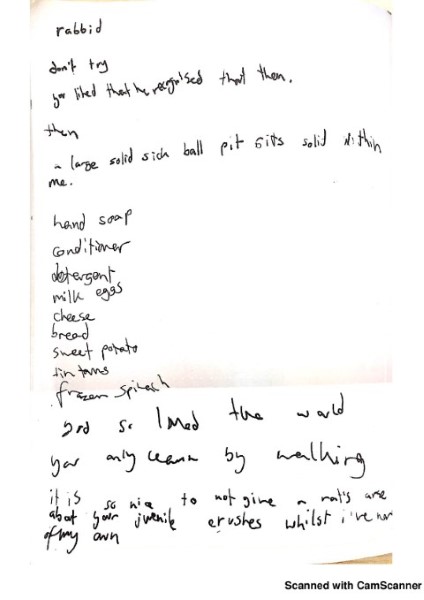 rabbid
don't try
you liked that he recognised that then.
then
a large solid sick ball pit sits solid within
me.
hand soap
conditioner
detergent
milk eggs
cheese
bread
sweet potato
frozen spinach
god so the world
you only learn by walking
it is so nice to not give a rat's arse
about your juvenile crushes whilst i've
of my own
Scanned with CamScanner